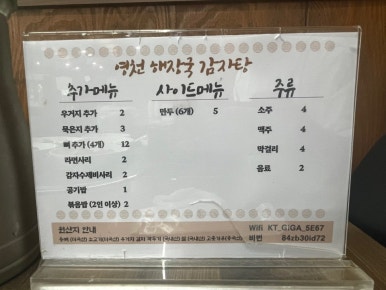 영천 해장국 감자탕
추가메뉴
우거지 추가 2
묵은지 추가 3
뼈 추가 (4개) 12
라면사리 2
감자수제비사리 2
공기밥 1
볶음밥 (2인 이상) 2
사이드메뉴
만두 (6개) 5
주류
소주 4
맥주 4
막걸리 4
음료 2
원산지 안내
Wifi KT_GiGA_5E67
비번 84zb30id72